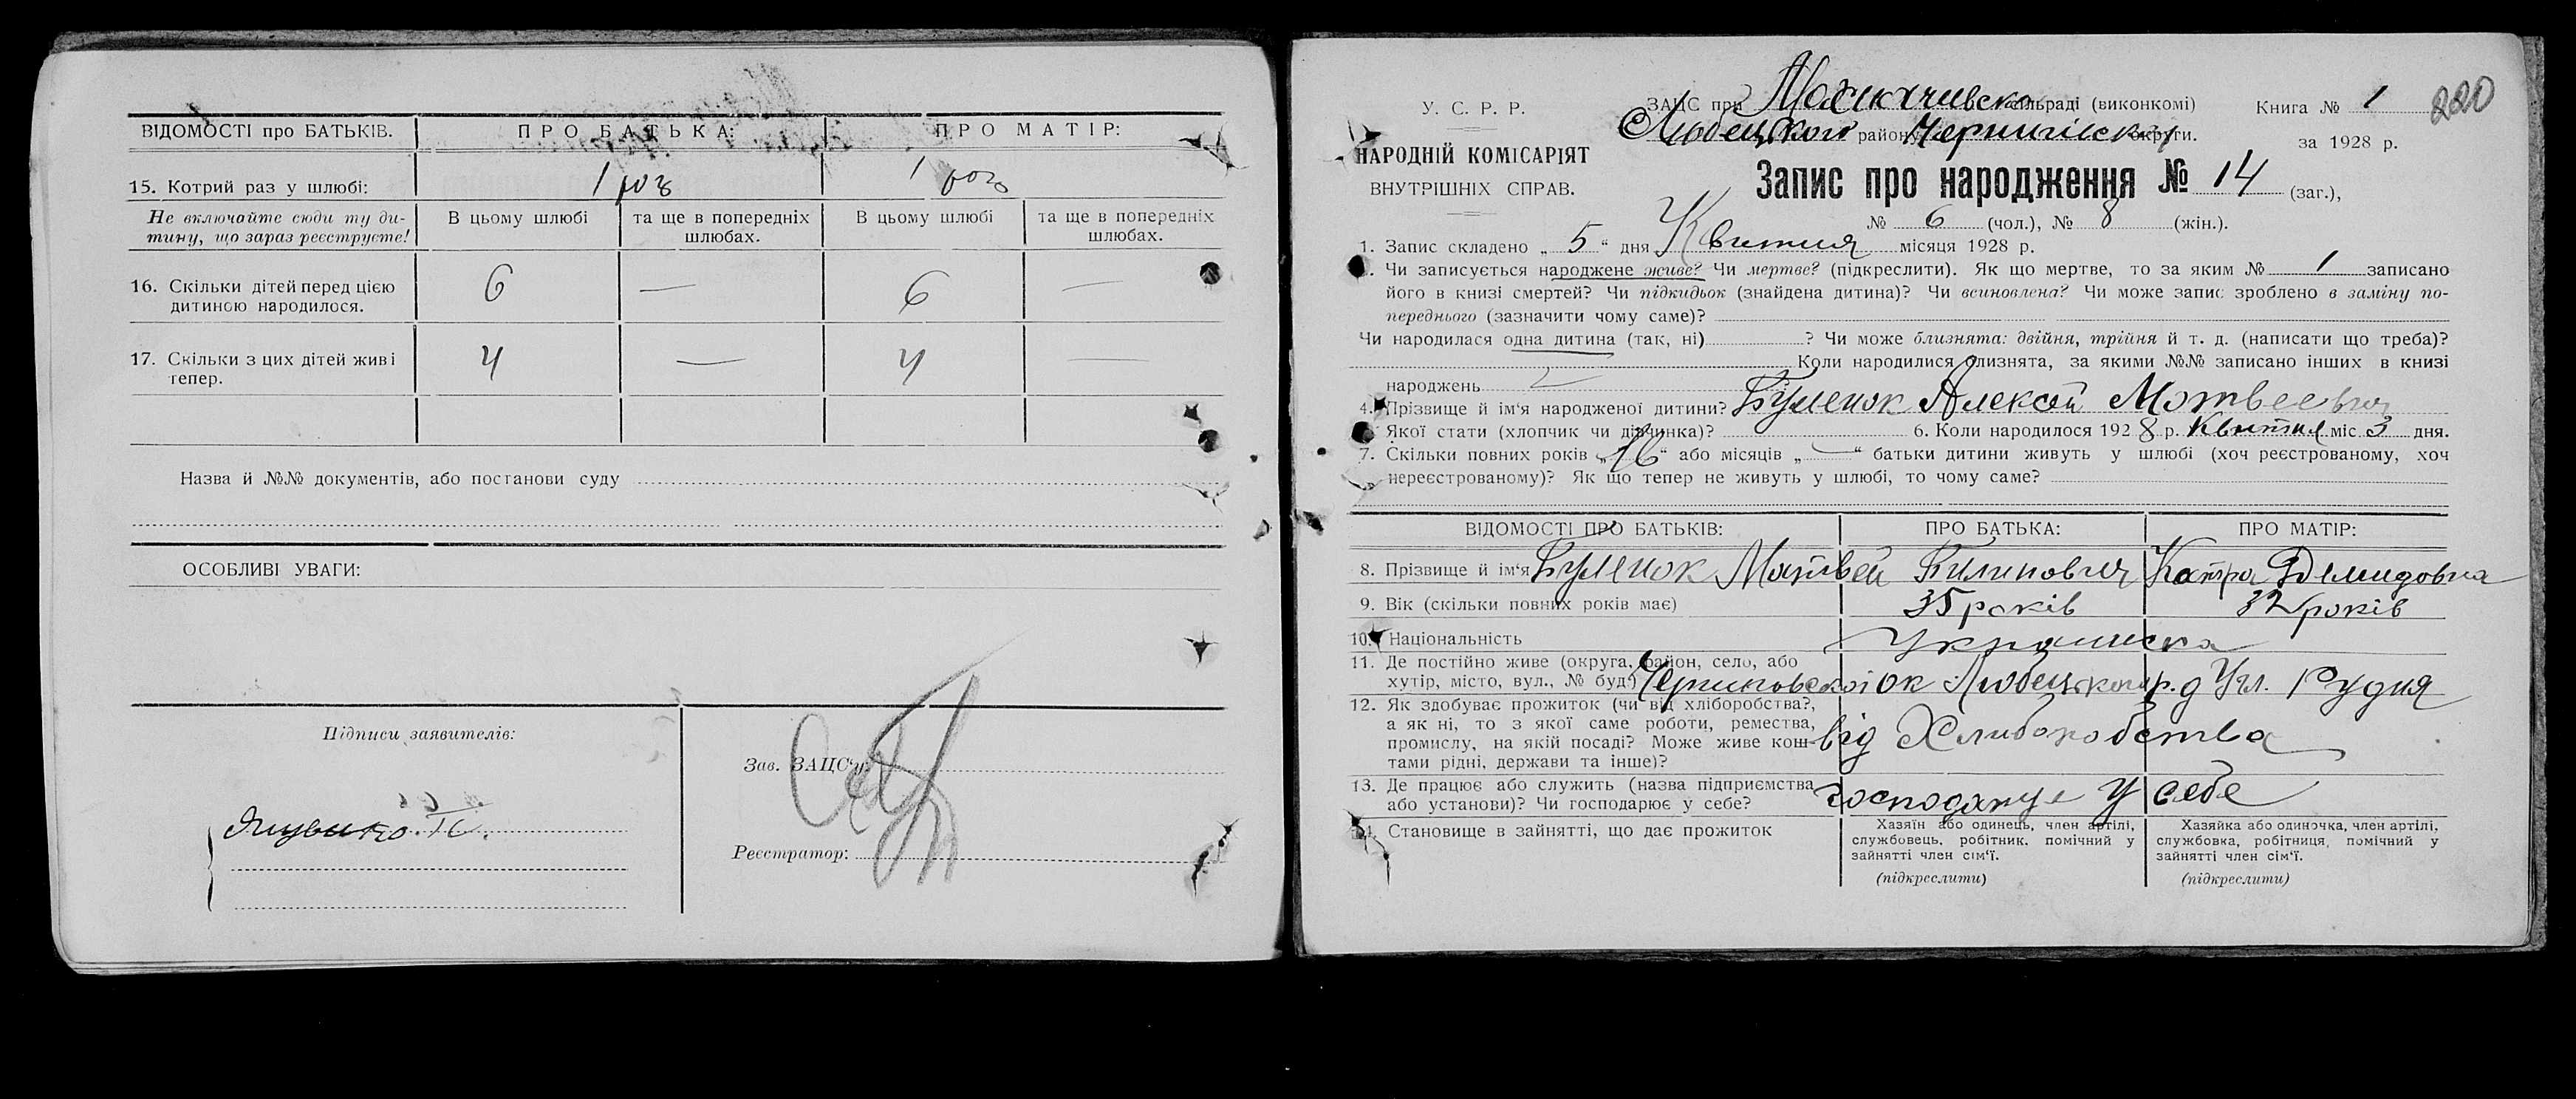 ВІДОМОСТІ про БАТЬКІВ. ПРО БАТЬКА: ПРО МАТІР:
15. Котрий раз у шлюбі: 1 раз 1 раз
Не включайте сюди ту ди-
тину, що зараз реєструєте!
В цьому шлюбі та ще в попередніх шлюбах. В цьому шлюбі та ще в попередніх шлюбах.
16. Скільки дітей перед цією
дитиною народилося. 6 — 6 —
17. Скільки з цих дітей живі
тепер. 4 — 4 —
Назва й №№ документів, або постанови суду
ОСОБЛИВІ УВАГИ:
Підписи заявителів:
Зав. ЗАЦС'у:
Реєстратор:
У. С. Р. Р.
НАРОДНІЙ КОМІСАРІЯТ
ВНУТРІШНІХ СПРАВ.
ЗАЦС при сільраді (виконкомі) Книга № 1 220
Любецкого району округи. за 1928 р.
Запис про народження № 14 (заг.),
№ 6 (чол.), № 8 (жін.).
1. Запис складено „ 5 “ дня Квитня місяця 1928 р.
Чи записується народжене живе? Чи мертве? (підкреслити). Як що мертве, то за яким № 1 записано
його в книзі смертей? Чи підкидьок (знайдена дитина)? Чи всиновлена? Чи може запис зроблено в заміну по-
переднього (зазначити чому саме)?
Чи народилася одна дитина (так, ні) ? Чи може близнята: двійня, трійня й т. д. (написати що треба)?
Коли народилися близнята, за якими №№ записано інших в книзі
народжень —
4. Прізвище й ім'я народженої дитини? Буленок Алексей Матвеевич
Якої стати (хлопчик чи дівчинка)? 6. Коли народилося 1928 р. Квитня міс. 3 дня.
7. Скільки повних років „ 16 “ або місяців „ — “ батьки дитини живуть у шлюбі (хоч реєстрованому, хоч
нереєстрованому)? Як що тепер не живуть у шлюбі, то чому саме?
ВІДОМОСТІ ПРО БАТЬКІВ: ПРО БАТЬКА: ПРО МАТІР:
8. Прізвище й ім'я Буленок Матвей Катра Демидовна
9. Вік (скільки повних років має) 35 років 32 років
10. Національність Українска
11. Де постійно живе (округа, район, село, або
хутір, місто, вул., № буд.) ок Любецького р. Рудня
12. Як здобуває прожиток (чи від хліборобства?,
а як ні, то з якої саме роботи, ремества,
промислу, на якій посаді? Може живе кош-
тами рідні, держави та інше)? від Хлиборобства
13. Де працює або служить (назва підприємства
або установи)? Чи господарює у себе? господарує у себе
14. Становище в зайнятті, що дає прожиток
Хазяїн або одинець, член артілі,
службовець, робітник, помічний у
зайнятті член сім'ї.
(підкреслити)
Хазяйка або одиночка, член артілі,
службовка, робітниця, помічний у
зайнятті член сім'ї.
(підкреслити)